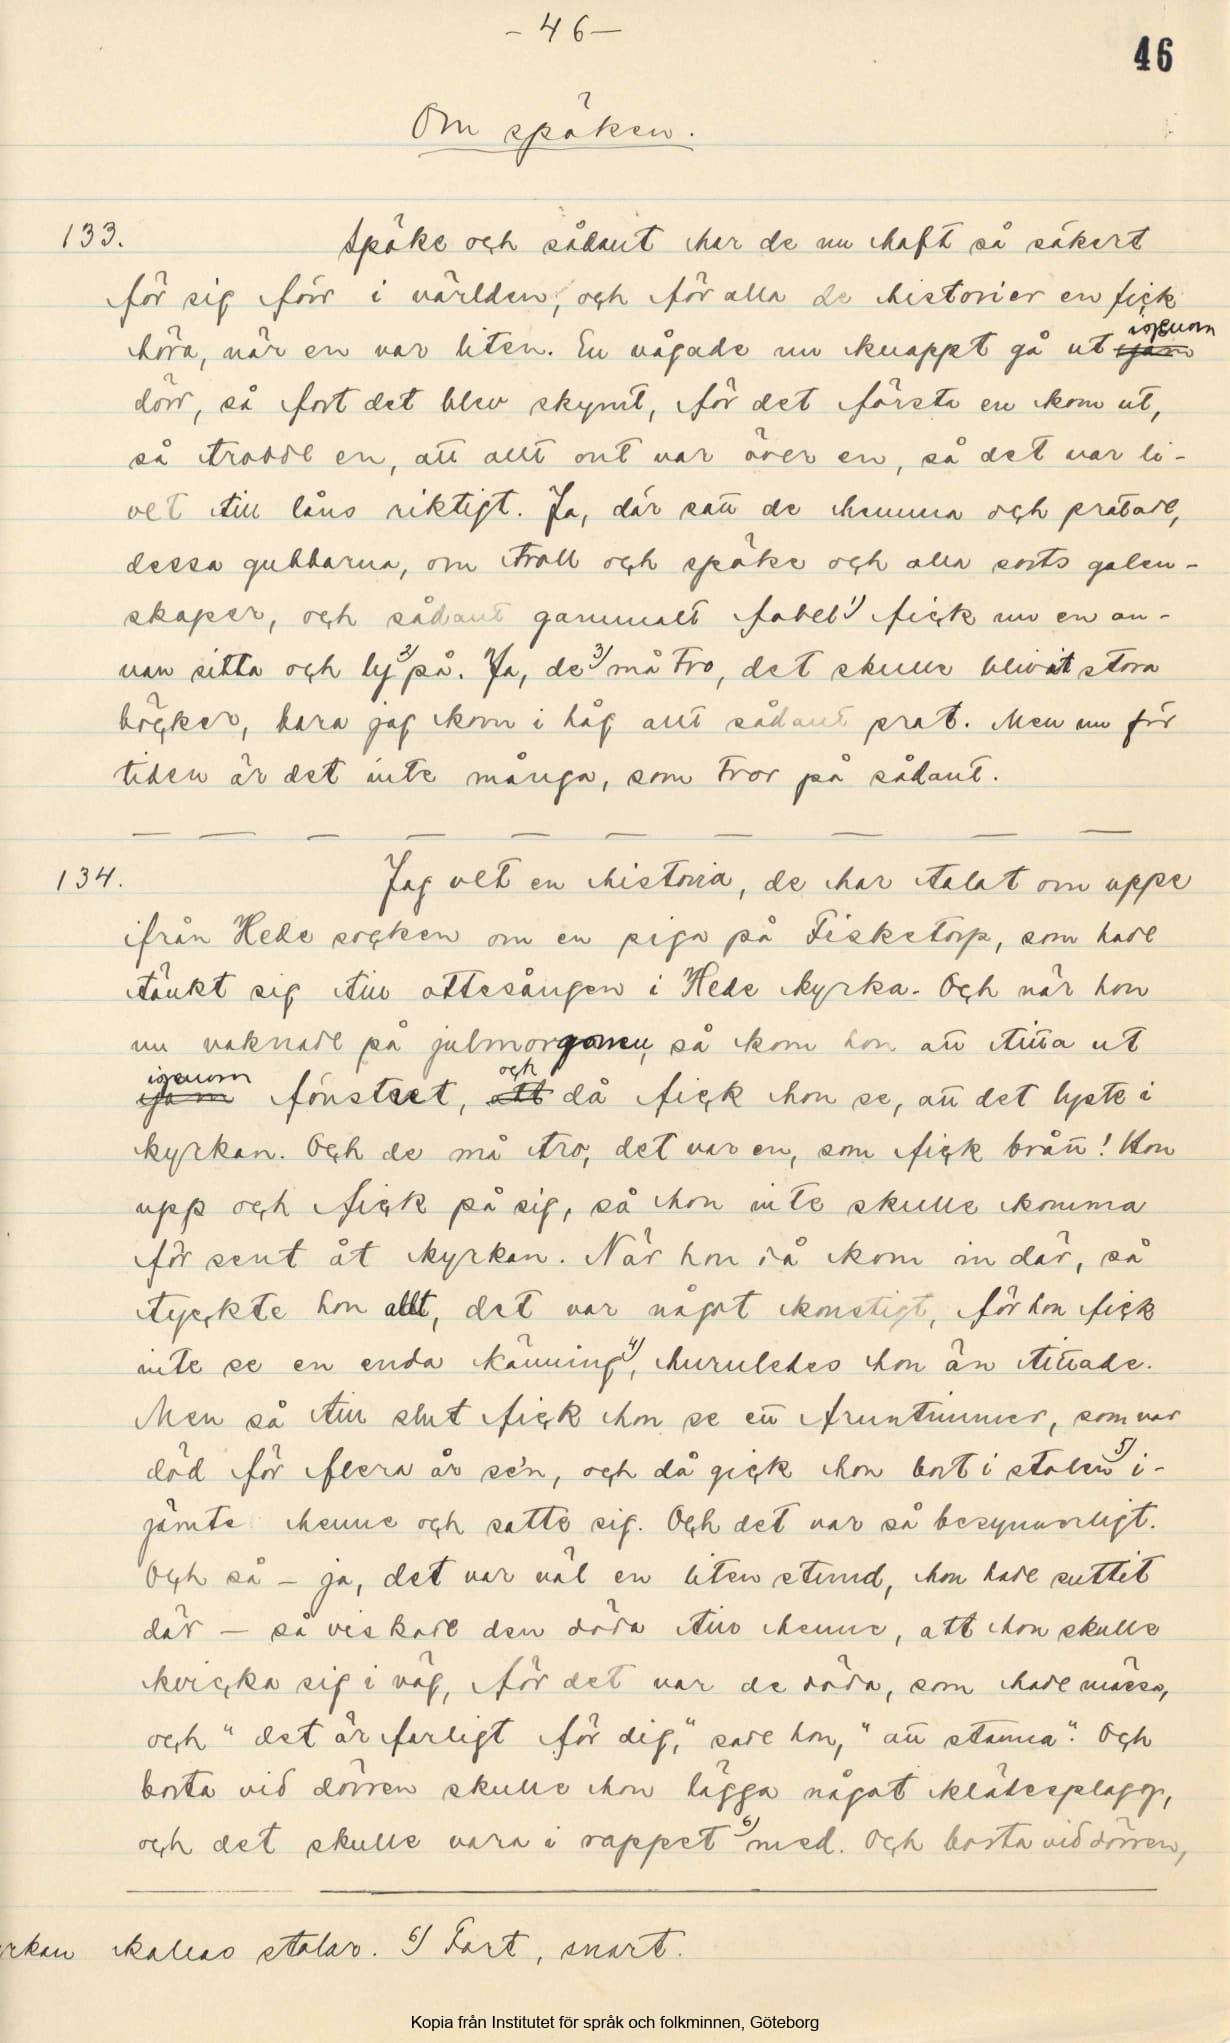 - 46 -
46
Om spöken.
133. Spöke och sådant har de nu haft så säkert
för sig förr i världen, och för alla de historier en fick
höra, när en var liten. En vågade nu knappt gå ut igenom
dörr, så fort det blev skymt, för det första en kom ut,
så trodde en, att allt ont var över en, så det var li-
vet till låns riktigt. Ja, där satt de hemma och pratade,
dessa gubbarna, om troll och spöke och alla sorts galen-
skaper, och sådant gammalt fabel 1) fick nu en an-
nan sitta och ly 2) på. Ja, de 3) må tro, det skulle blivit stora
böcker, bara jag kom i håg allt sådant prat. Men nu för
tiden är det inte många, som tror på sådant.
134. Jag vet en historia, de har talat om uppe
ifrån Hede socken om en piga på Fisketorp, som hade
tänkt sig till ottesången i Hede kyrka. Och när hon
nu vaknade på julmorgonen, så kom hon att titta ut
igenom fönstret, och då fick hon se, att det lyste i
kyrkan. Och de må tro, det var en, som fick brått! Hon
upp och fick på sig, så hon inte skulle komma
för sent åt kyrkan. När hon då kom in där, så
tyckte hon allt, det var något konstigt, för hon fick
inte se en enda känning 4), huruledes hon än tittade.
Men så till slut fick hon se ett fruntimmer, som var
död för flera år se'n, och då gick hon bort i stolen 5) i-
jämte henne och satte sig. Och det var så besynnerligt.
Och så - ja, det var väl en liten stund, hon hade suttit
där - så viskade den döda till henne, att hon skulle
kvicka sig i väg, för det var de döda, som hade mässa,
och "det är farligt för dig," sade hon, "att stanna". Och
borta vid dörren skulle hon lägga något klädesplagg,
och det skulle vara i rappet 6) med. Och borta vid dörren,
rkan kallas stolar. 6) Fort, snart.
Kopia från Institutet för språk och folkminnen, Göteborg